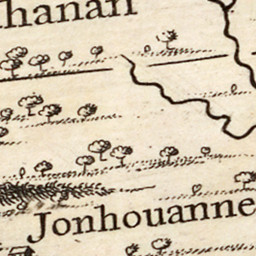 hanan
Jonhouanne